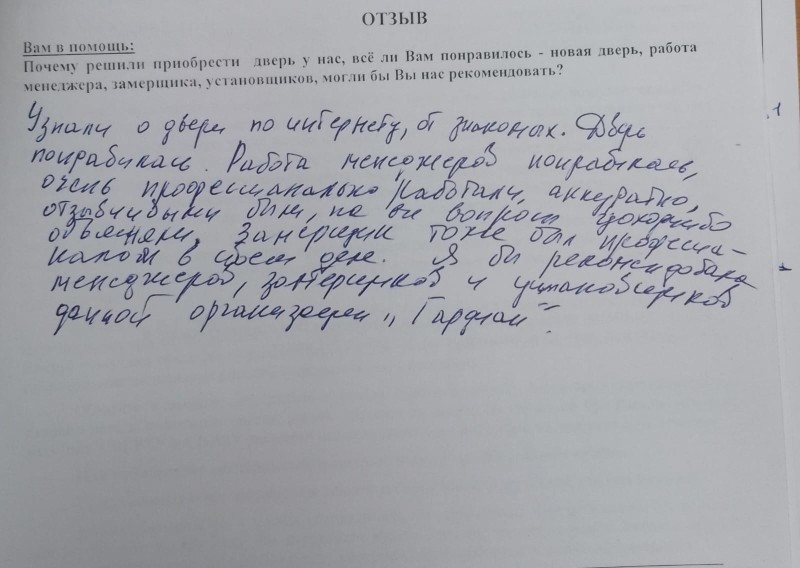 ОТЗЫВ
Вам в помощь:
Почему решили приобрести дверь у нас, всё ли Вам понравилось - новая дверь, работа
менеджера, замерщика, установщиков, могли бы Вы нас рекомендовать?
Узнали о двери по интернету, от знакомых. Дверь
понравилась. Работа менеджеров понравилась,
очень профессионально работали, аккуратно,
отзывчивыми были, на все вопросы доходчиво
объясняли. Замерщик тоже был профессио-
налом в своем деле. Я бы рекомендовала
менеджеров, замерщиков и установщиков
данной организации „Гардиан".
1